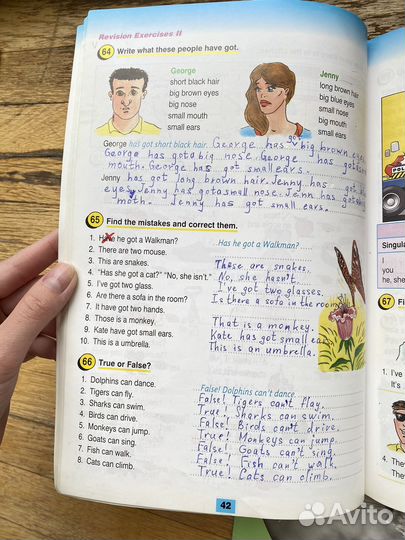 Revision Exercises II
64 Write what these people have got.
George
short black hair
big brown eyes
big nose
small mouth
small ears
Jenny
long brown hair
big blue eyes
small nose
big mouth
small ears
George has got short black hair. George has got big brown eyes
George has got a big nose. George has got
mouth. George has got small ears.
Jenny has got long brown hair. Jenny has got
eyes. Jenny has got a small nose. Jenn has got
moth. Jenny has got small ears.
65 Find the mistakes and correct them.
1. Have he got a Walkman? Has he got a Walkman?
2. There are two mouse.
3. This are snakes. These are snakes.
4. "Has she got a cat?" "No, she isn't." No, she hasn't.
5. I've got two glass. I've got two glasses.
6. Are there a sofa in the room? Is there a sofa in the room
7. It have got two hands.
8. Those is a monkey. That is a monkey.
9. Kate have got small ears. Kate has got small ears
10. This is a umbrella. This is an umbrella.
66 True or False?
1. Dolphins can dance. False! Dolphins can't dance.
2. Tigers can fly. False! Tigers can't flay.
3. Sharks can swim. True! Sharks can swim.
4. Birds can drive. False! Birds can't drive.
5. Monkeys can jump. True! Monkeys can jump.
6. Goats can sing. False! Goats can't sing.
7. Fish can walk. False! Fish can't walk.
8. Cats can climb. True! Cats can climb.
42
Singula
I
you
he, she
67 Fi
1. I've
4. They
They
Avito